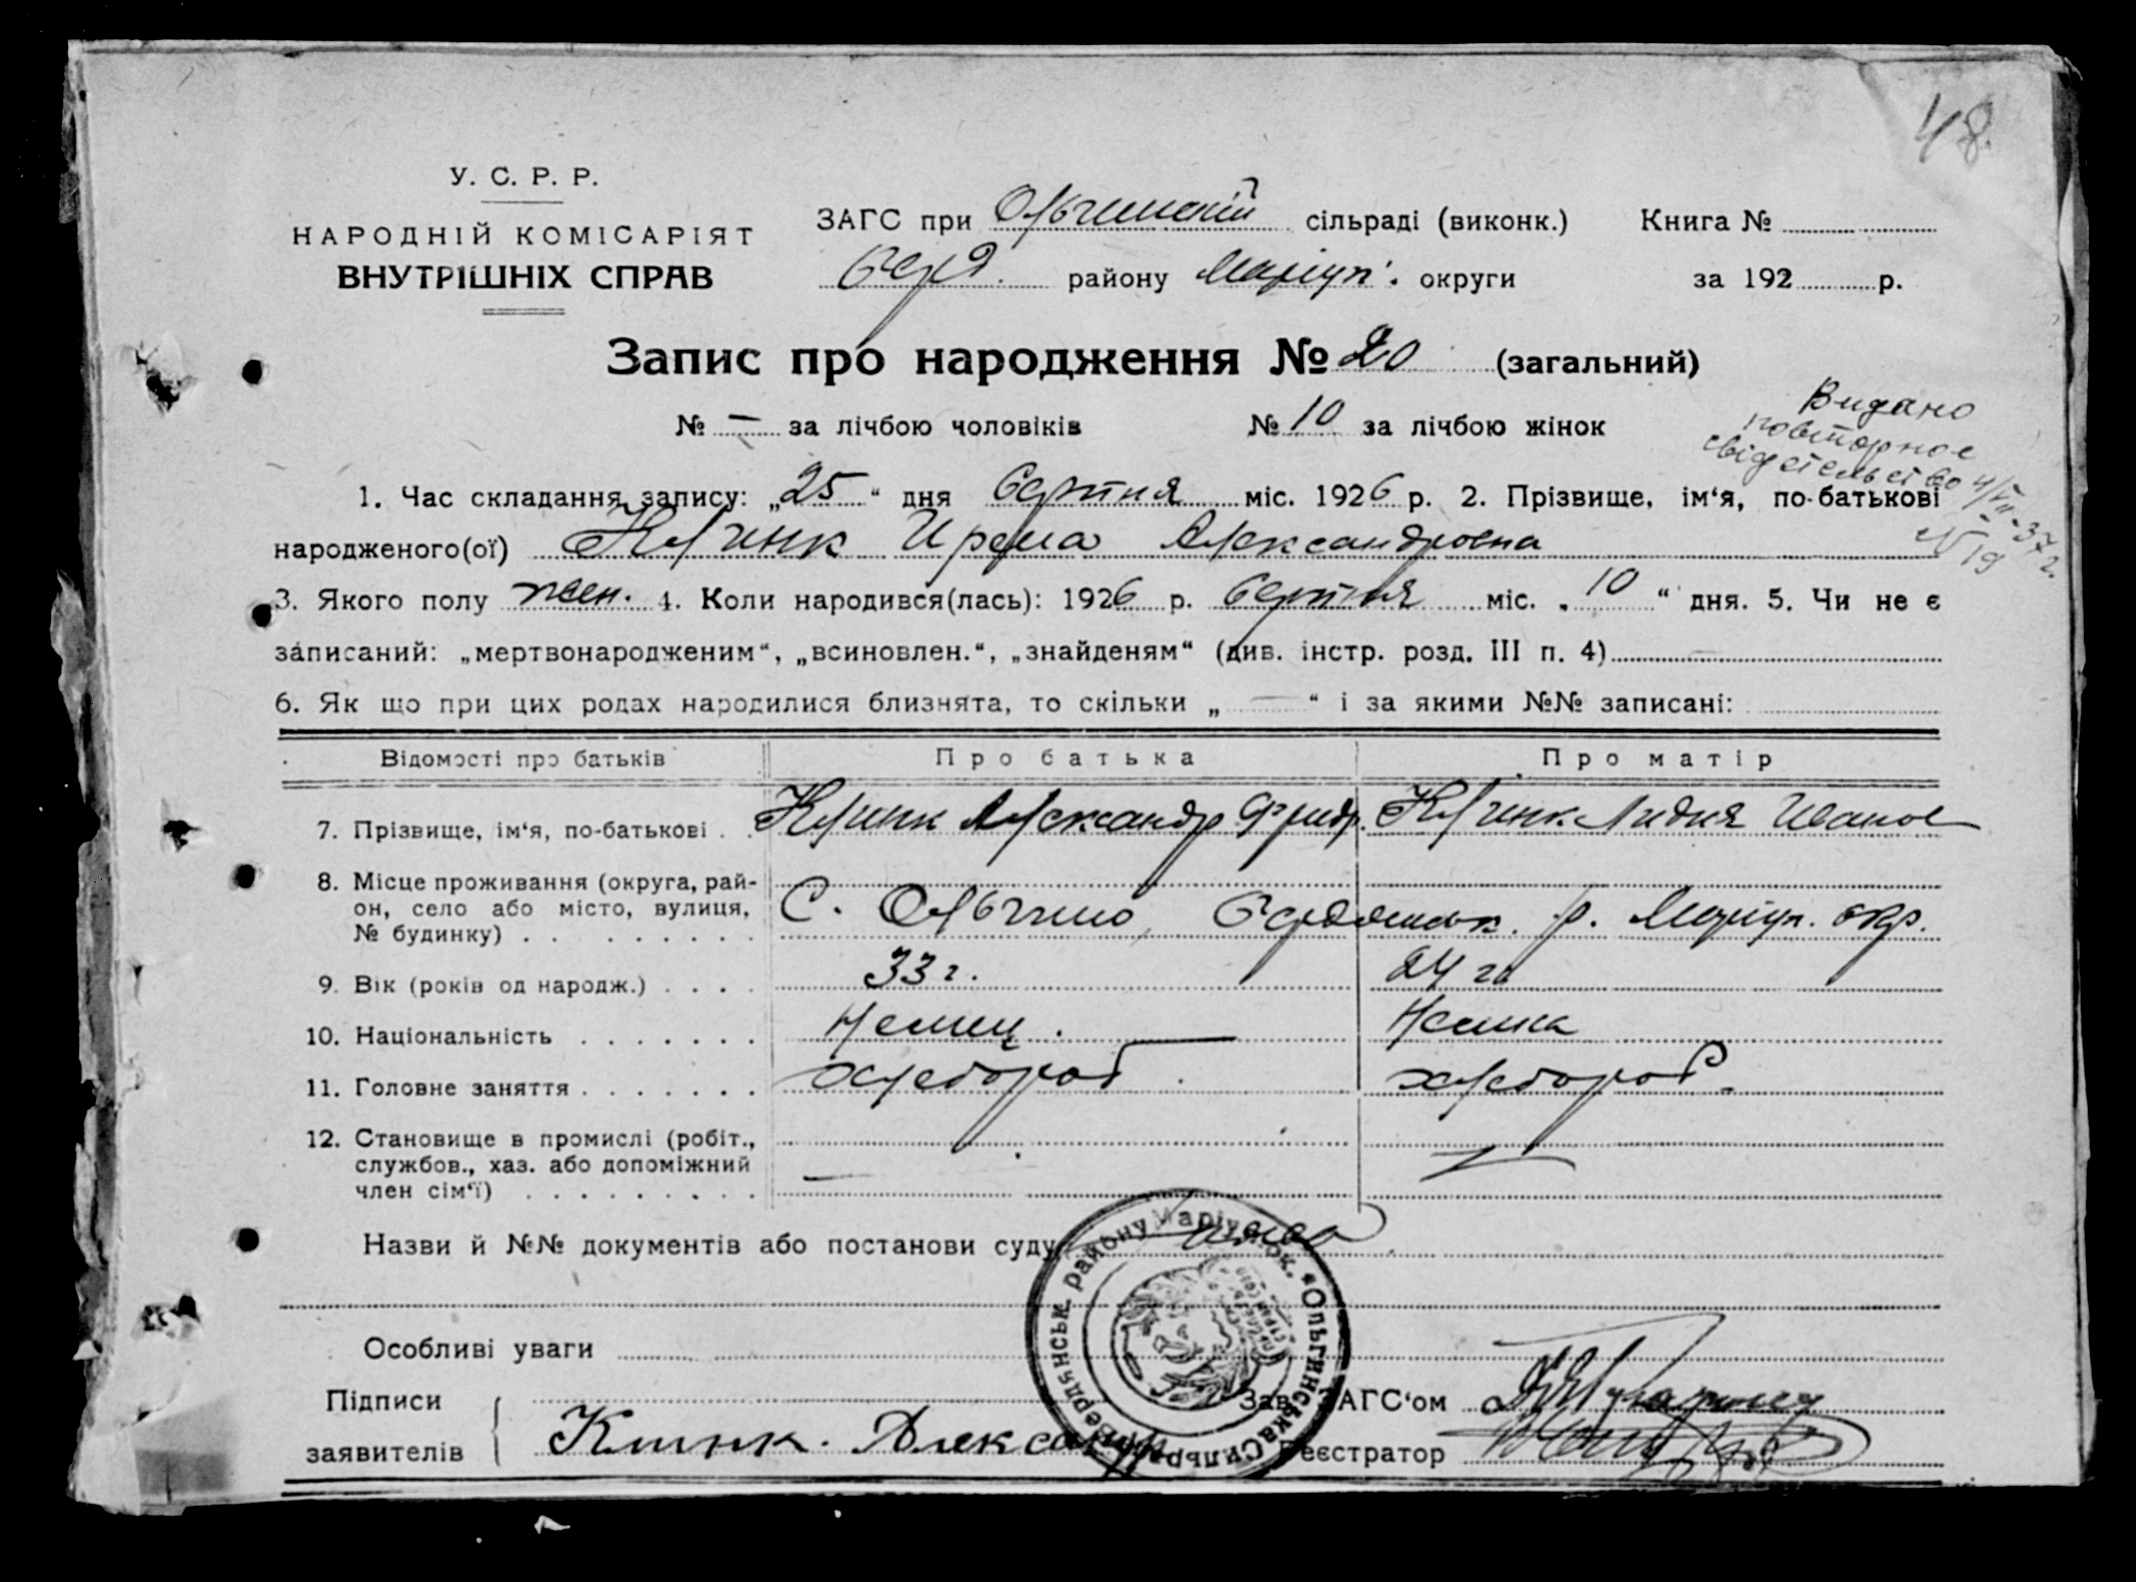 48.
У. С. Р. Р.
НАРОДНІЙ КОМІСАРІЯТ
ВНУТРІШНІХ СПРАВ
ЗАГС при Ольгинскій сільраді (виконк.) Книга №
Берд. району Маріуп. округи за 192 р.
Запис про народження № 20 (загальний)
№ — за лічбою чоловіків № 10 за лічбою жінок
Видано
повторное
свідетельство 4/VII-37 г.
№ 19
1. Час складання запису: „25“ дня Серпня міс. 1926 р. 2. Прізвище, ім‘я, по-батькові
народженого(ої) Клинк Ирма Александровна
3. Якого полу жен. 4. Коли народився(лась): 1926 р. Серпня міс. „10“ дня. 5. Чи не є
записаний: „мертвонародженим“, „всиновлен.“, „знайденям“ (див. інстр. розд. III п. 4) —
6. Як що при цих родах народилися близнята, то скільки „—“ і за якими №№ записані:
Відомості про батьків Про батька Про матір
7. Прізвище, ім‘я, по-батькові . . Клинк Александр Фридр. Клинк Лидия Иванов
8. Місце проживання (округа, рай-
он, село або місто, вулиця,
№ будинку) . . . . . . . . . С. Ольгино, Бердянськ. р. Маріуп. окр.
9. Вік (років од народж.) . . . . 33 г. 24 г.
10. Національність . . . . . . . Немец. Немка
11. Головне заняття . . . . . . . хлебороб. хлебороб.
12. Становище в промислі (робіт.,
службов., хаз. або допоміжний
член сім‘ї) . . . . . . . . . — —
Назви й №№ документів або постанови суду
Особливі уваги
Підписи
заявителів Клинк. Александр
Зав. ЗАГС‘ом
Реєстратор
Ольгинська Сильрада Бердянськ. району Маріуп. ок.